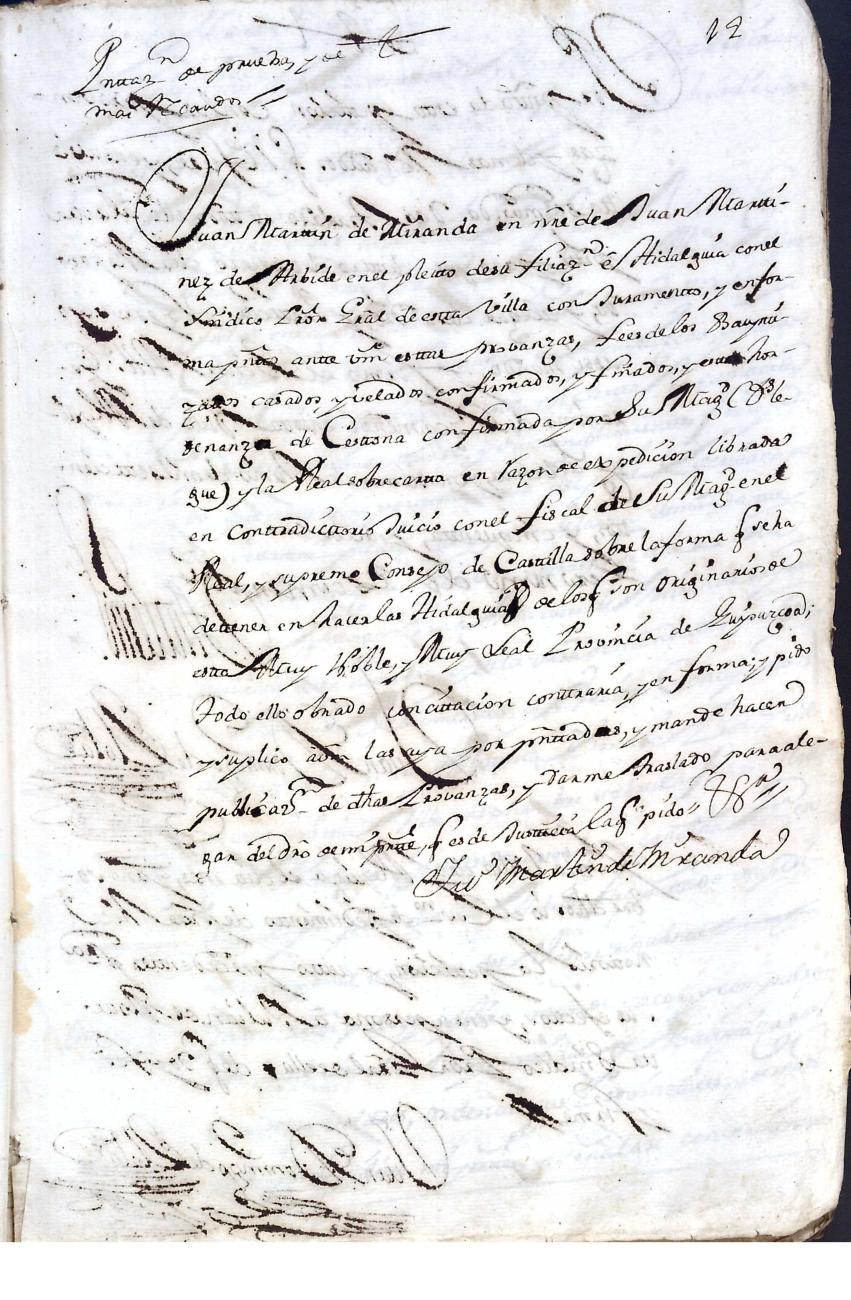 12
Pnttaz.n de prueba, y de
mas Recaudos
Juan Martin de Miranda en nre de Juan Marti-
nez de Arbide en el pleito de su filiaz.n e Hidalguia con el
Sindico Pror Gral de esta Villa con Juramento, y en for-
ma pnto ante vm estas provanzas, fees de los Baupti-
zados casados, y velados confirmados, y finados, y
denanza de Cestona confirmada por Su Mag.d (Ds le-
gue) y la Real sobrecarta en razon de expedicion librada
en Conttradictorio Juicio con el fiscal de Su Mag.d en el
Real, y supremo Consejo de Castilla sobre la forma q se ha
de tener en hacer las Hidalguias de los q son originarios de
esta Muy Noble, y Muy Leal Provincia de Guipuzcoa;
todo ello obrado con cittacion contraria, y en forma; y pido
y suplico a vm las aya por pnttadas, y mande hacer
publicaz.n de dhas Provanzas, y darme traslado para ale-
gar del dro de mi parte, q es de Justicia la q pido
Ju.o Martin de Miranda